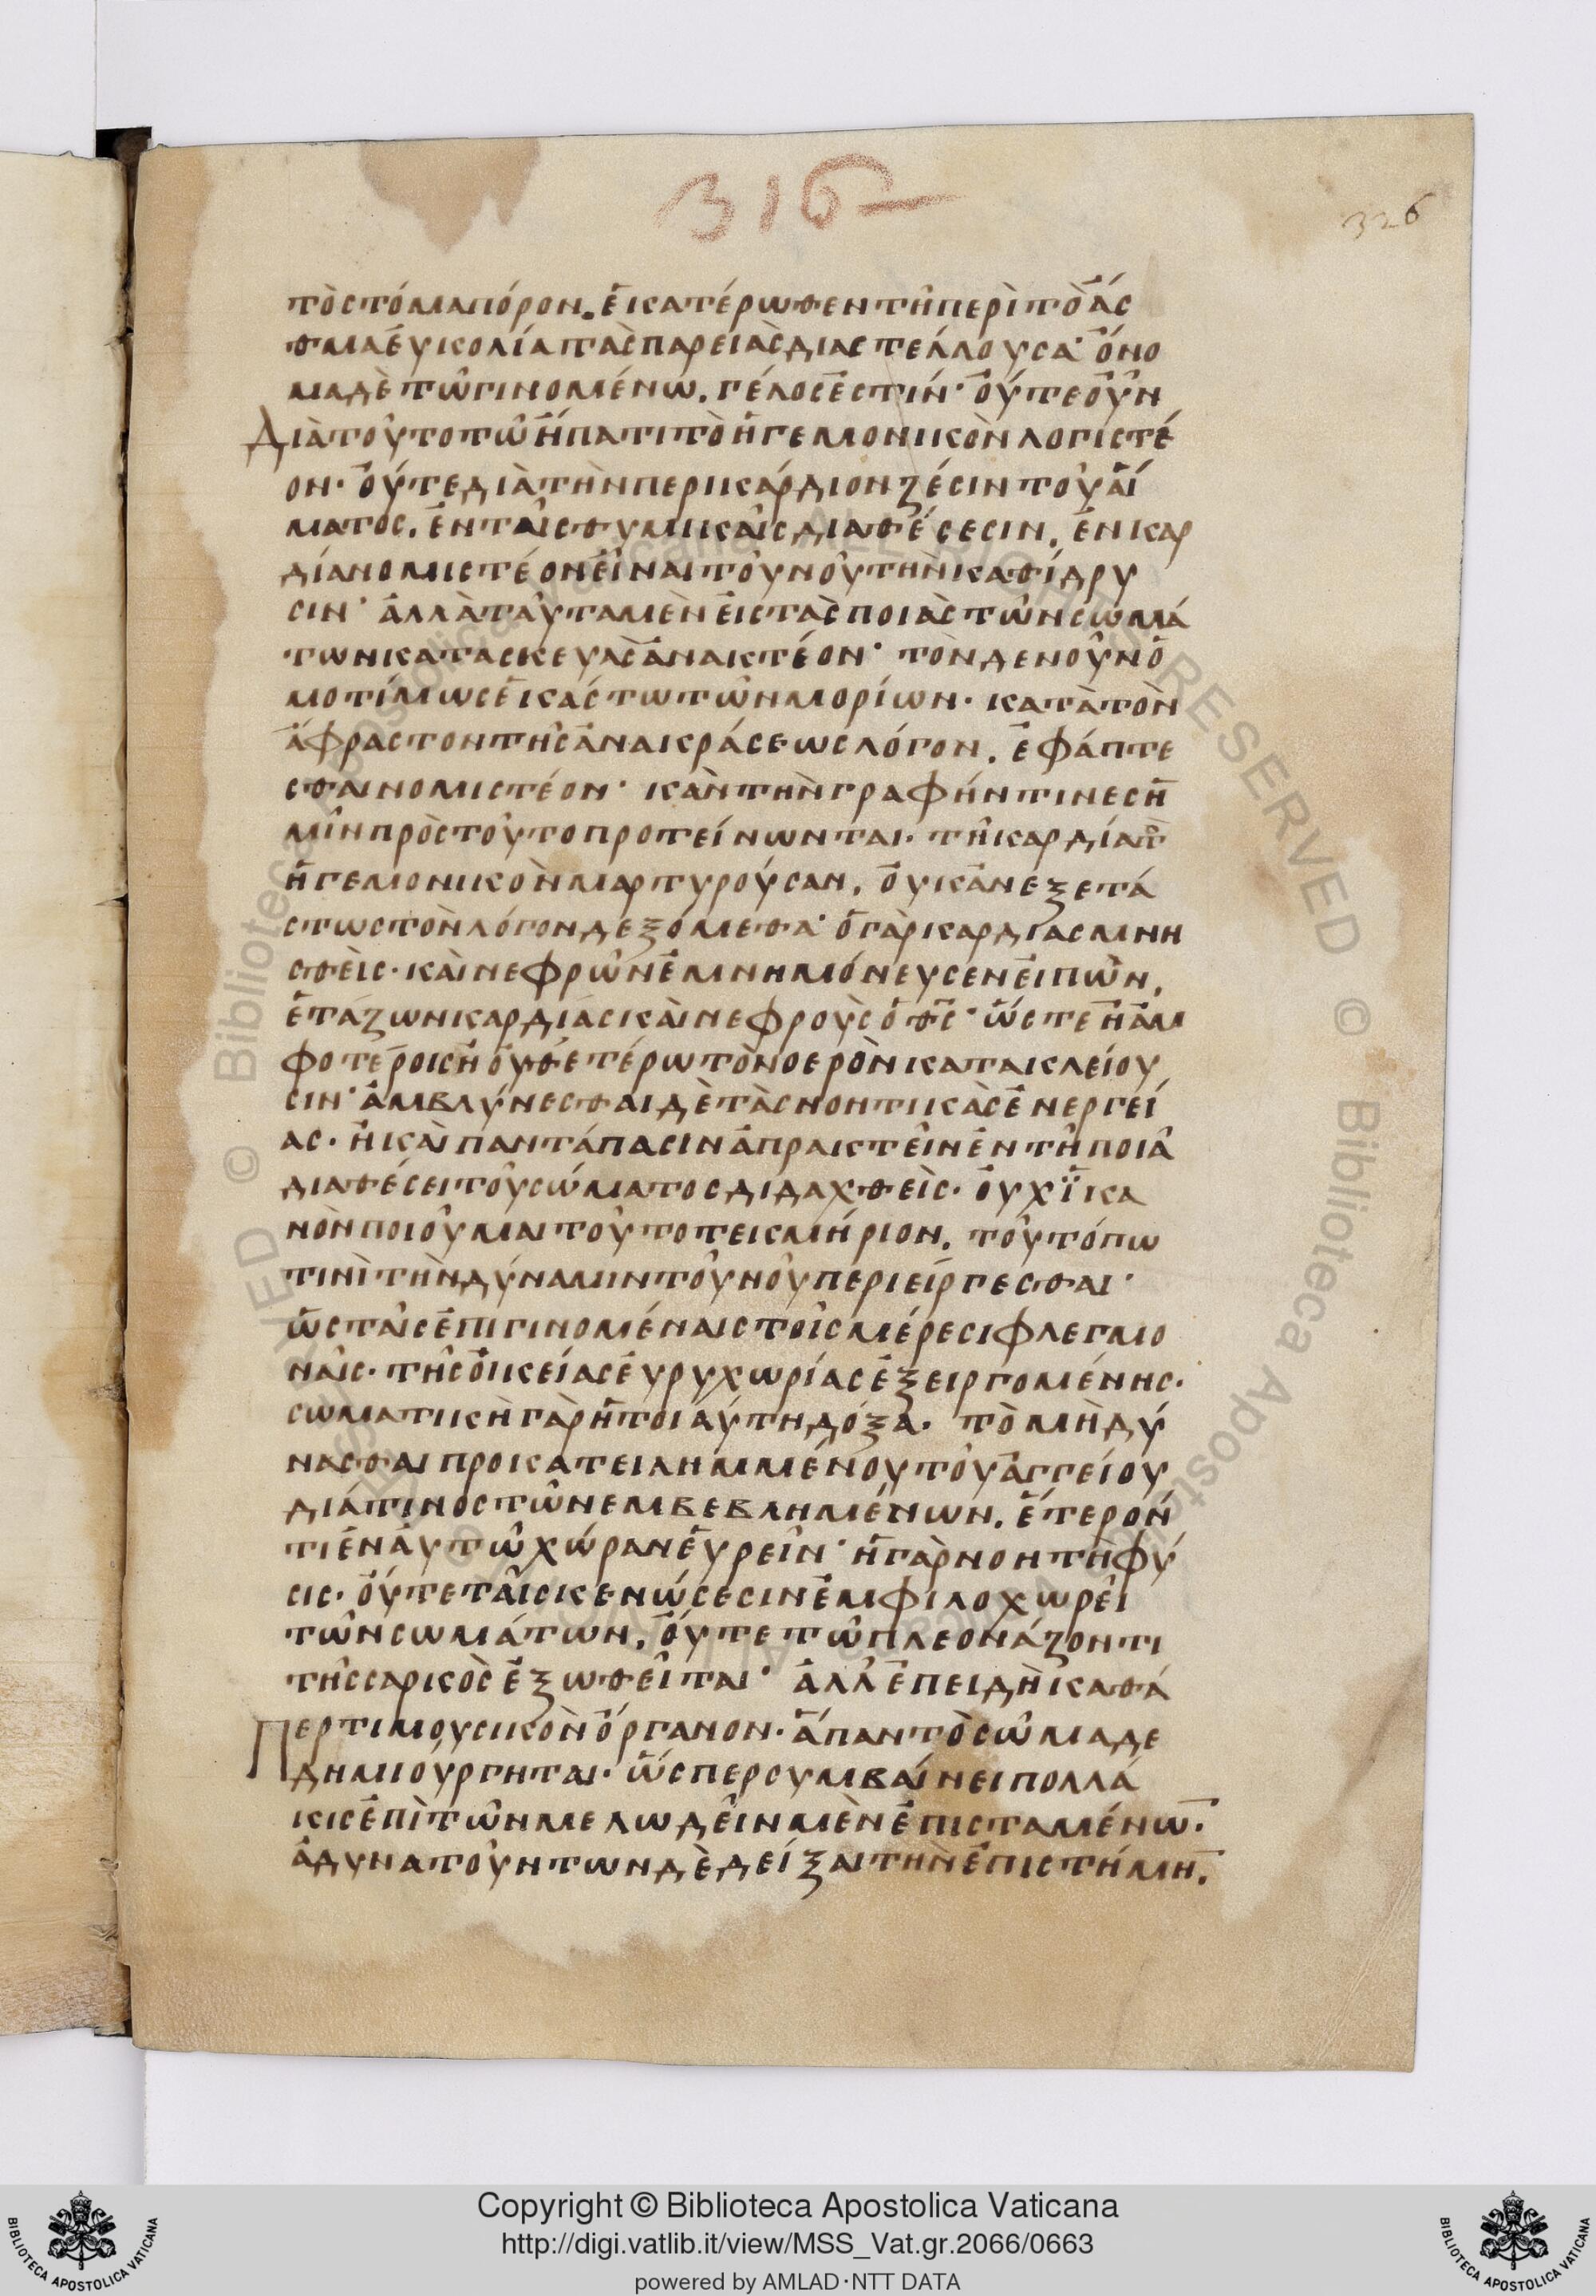 316
326
τὸ στόμα πόρον. ἑκατέρωθεν τῆ περὶ τὸ ἆσ
θμα ἐυκολία τὰς παρειὰς διαστέλλουσα· ὄνο
μα δὲ τῶ γινομένω. γέλος ἐστίν· οὔτε οὖν
Διὰ τοῦτο τῶ ἥπατι τὸ ἡγεμονικὸν λογιστέ
ον· οὔτε διὰ τὴν περικάρδιον ζέσιν τοῦ ἁί
ματος. ἐν ταῖς θυμικαῖς διαθέσεσιν. ἐν καρ
δία νομιστέον εἶναι τοῦ νοῦ τὴν καθίδρυ
σιν· ἀλλὰ ταῦτα μὲν εἰς τὰς ποιὰς τῶν σωμά
των κατασκευὰς ἀνακτέον· τὸν δε νοῦν ὁ
μοτίμως ἑκάστω τῶν μορίων· κατὰ τὸν
ἄφραστον τῆς ἀνακράσεως λόγον. ἐφάπτε
σθαι νομιστέον· κἂν τὴν γραφήν τινες ἡ
μῖν πρὸς τοῦτο προτείνωνται· τῆ καρδία τὸ
ἡγεμονικὸν μαρτυροῦσαν. οὐκ ἀνεξετά
στως τὸν λόγον δεξόμεθα· ὁ γὰρ καρδίας μνη
σθεὶς· καὶ νεφρῶν ἐμνημόνευσεν εἰπὼν.
ἐτάζων καρδίας καὶ νεφροὺς ὁ θς· ὥστε ἢ ἀμ
φοτέροις ἢ οὐθετέρω τὸ νοερὸν κατακλείου
σιν· ἀμβλύνεσθαι δὲ τὰς νοητικὰς ἐνεργεί
ας· ἢ καὶ παντάπασιν ἀπρακτεῖν ἐν τῆ ποιᾶ
διαθέσει τοῦ σώματος διδαχθεὶς· οὐχ ϊκα
νὸν ποιοῦμαι τοῦτο τεκμήριον. τοῦ τόπω
τινὶ τὴν δύναμιν τοῦ νοῦ περιείργεσθαι·
ὡς ταῖς ἐπιγινομέναις τοῖς μέρεσι φλεγμο
ναῖς· τῆς οἰκείας ἐυρυχωρίας ἐξειργομένης·
σωματικὴ γὰρ ἡ τοιαύτη δόξα· τὸ μὴ δύ
νασθαι προκατειλημμένου τοῦ ἀγγείου
διά τινος τῶν εμβεβλημένων. ἕτερόν
τι ἐν ἀυτῶ χώραν ἑυρεῖν· ἡ γὰρ νοητὴ φύ
σις· οὔτε ταῖς κενώσεσιν ἐμφιλοχωρεῖ
τῶν σωμάτων. οὔτε τῶ πλεονάζοντι
τῆς σαρκὸς ἐξωθεῖται· ἀλλ' ἐπειδὴ καθά
Περ τι μουσικὸν ὄργανον· ἅπαν τὸ σῶμα δε
δημιούργηται· ὥσπερ συμβαίνει πολλά
κις ἐπὶ τῶν μελωδεῖν μὲν ἐπισταμένω̅·
ἀδυνατούντων δὲ δεῖξαι τὴν ἐπιστήμη̅.
Copyright © Biblioteca Apostolica Vaticana
http://digi.vatlib.it/view/MSS_Vat.gr.2066/0663
powered by AMLAD·NTT DATA
BIBLIOTECA APOSTOLICA VATICANA
BIBLIOTECA APOSTOLICA VATICANA